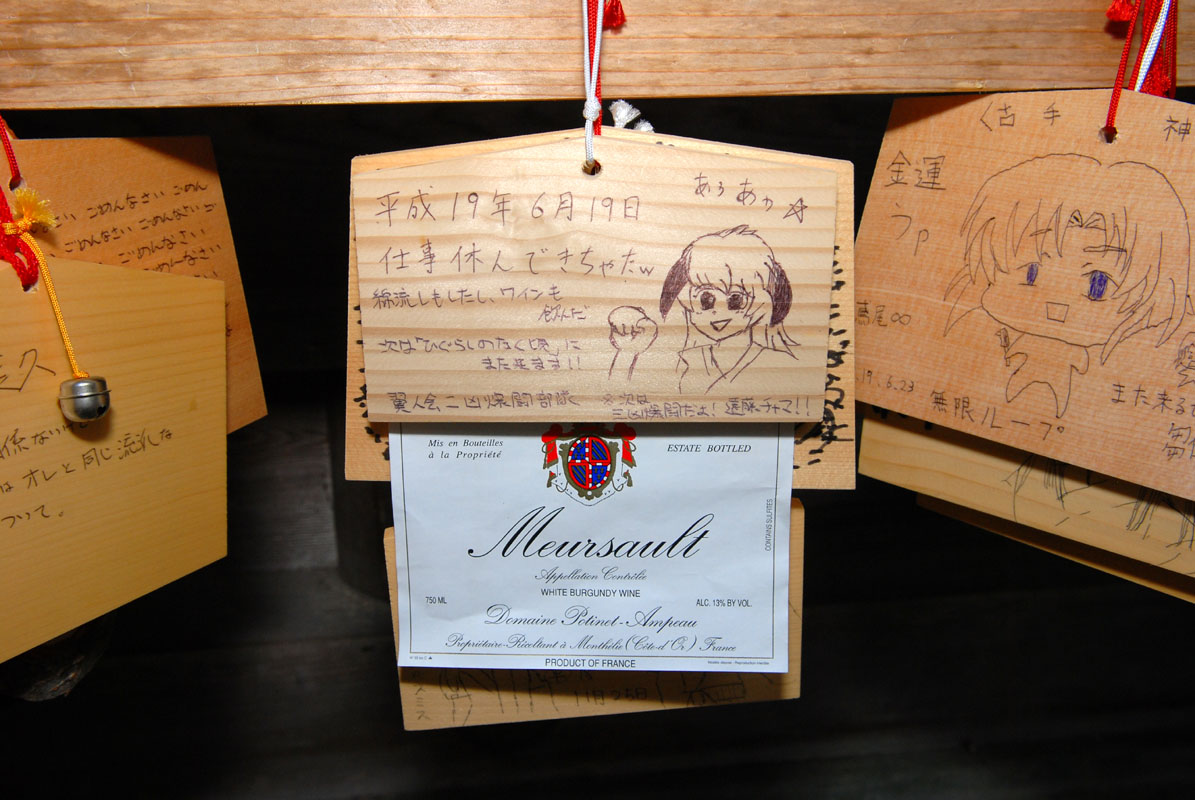 平成19年6月19日
あぅあぅ☆
仕事休んできちゃたw
綿流しもしたし、ワインも
飲んだ
次は「ひぐらしのなく頃」に
また来ます!!
翼人会二凶爆闘部隊
※次は
三凶爆闘だよ! 遠藤チャマ!!
Mis en Bouteilles
à la Propriété
ESTATE BOTTLED
CONTAINS SULFITES
Meursault
Appellation Contrôlée
WHITE BURGUNDY WINE
750 ML
ALC. 13% BY VOL.
Domaine Potinet-Ampeau
Propriétaire-Récoltant à Monthélie (Côte-d'Or) France
PRODUCT OF FRANCE
11月25日
さい ごめんなさい ごめん
ごめんなさい ごめんなさい ご
ごめんなさい
久
オレと同じ流れな
ついて。
く古手 神
金運
うp
19.6.23
無限ループ
また来る